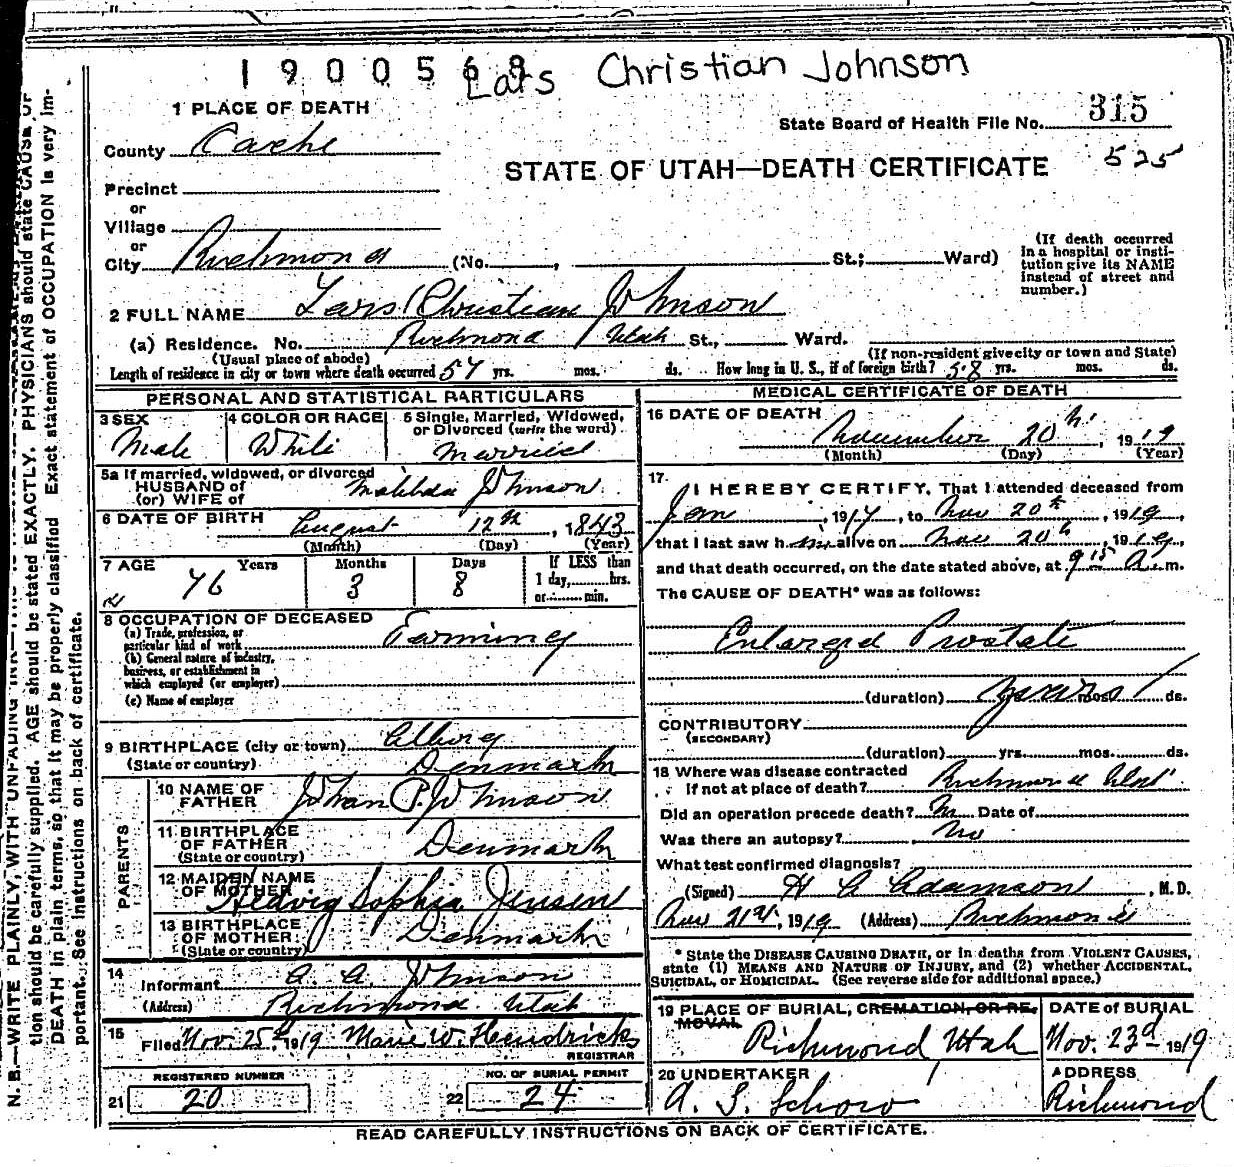 1900569
Lars Christian Johnson
1 PLACE OF DEATH
State Board of Health File No. 315
County Cache
STATE OF UTAH—DEATH CERTIFICATE 525
Precinct
or
Village
or
City Richmond (No. , St.; Ward)
(If death occurred in a hospital or institution give its NAME instead of street and number.)
2 FULL NAME Lars Christian Johnson
(a) Residence. No. Richmond Utah St., Ward.
(Usual place of abode) (If non-resident give city or town and State)
Length of residence in city or town where death occurred 57 yrs. mos. ds. How long in U. S., if of foreign birth? 58 yrs. mos. ds.
PERSONAL AND STATISTICAL PARTICULARS
3 SEX Male
4 COLOR OR RACE White
5 Single, Married, Widowed, or Divorced (write the word) Married
5a If married, widowed, or divorced
HUSBAND of
(or) WIFE of Matilda Johnson
6 DATE OF BIRTH August 12th, 1843
(Month) (Day) (Year)
7 AGE Years Months Days If LESS than
76 3 8 1 day, hrs.
or min.
8 OCCUPATION OF DECEASED
(a) Trade, profession, or
particular kind of work Farming
(b) General nature of industry,
business, or establishment in
which employed (or employer)
(c) Name of employer
9 BIRTHPLACE (city or town)
(State or country) Denmark
PARENTS
10 NAME OF
FATHER Johan P. Johnson
11 BIRTHPLACE
OF FATHER Denmark
(State or country)
12 MAIDEN NAME
OF MOTHER Hedvig Sophia Jensen
13 BIRTHPLACE
OF MOTHER Denmark
(State or country)
14
Informant A. A. Johnson
(Address) Richmond Utah
15
Filed Nov. 25th 1919 Marie W. Hendricks
REGISTRAR
REGISTERED NUMBER NO. OF BURIAL PERMIT
21 20 22 24
MEDICAL CERTIFICATE OF DEATH
16 DATE OF DEATH
November 20th, 1919
(Month) (Day) (Year)
17.
I HEREBY CERTIFY, That I attended deceased from
Jan, 1917, to Nov 20th, 1919,
that I last saw him alive on Nov 20th, 1919,
and that death occurred, on the date stated above, at 9 15 A. m.
The CAUSE OF DEATH* was as follows:
Enlarged Prostate
(duration) years mos. ds.
CONTRIBUTORY
(SECONDARY)
(duration) yrs. mos. ds.
18 Where was disease contracted
If not at place of death? Richmond Utah
Did an operation precede death? No Date of
Was there an autopsy? No
What test confirmed diagnosis?
(Signed) H A Adamson, M. D.
Nov 21st, 1919 (Address) Richmond
* State the DISEASE CAUSING DEATH, or in deaths from VIOLENT CAUSES,
state (1) MEANS AND NATURE OF INJURY, and (2) whether ACCIDENTAL,
SUICIDAL, or HOMICIDAL. (See reverse side for additional space.)
19 PLACE OF BURIAL, CREMATION, OR RE-
MOVAL
Richmond, Utah
DATE of BURIAL
Nov. 23d 1919
20 UNDERTAKER
A. S. Schow
ADDRESS
Richmond
READ CAREFULLY INSTRUCTIONS ON BACK OF CERTIFICATE.
N. B.—WRITE PLAINLY, WITH UNFADING INK—THIS IS
tion should be carefully supplied. AGE should be stated EXACTLY. PHYSICIANS should state CAUSE OF
DEATH in plain terms, so that it may be properly classified. Exact statement of OCCUPATION is very im-
portant. See instructions on back of certificate.